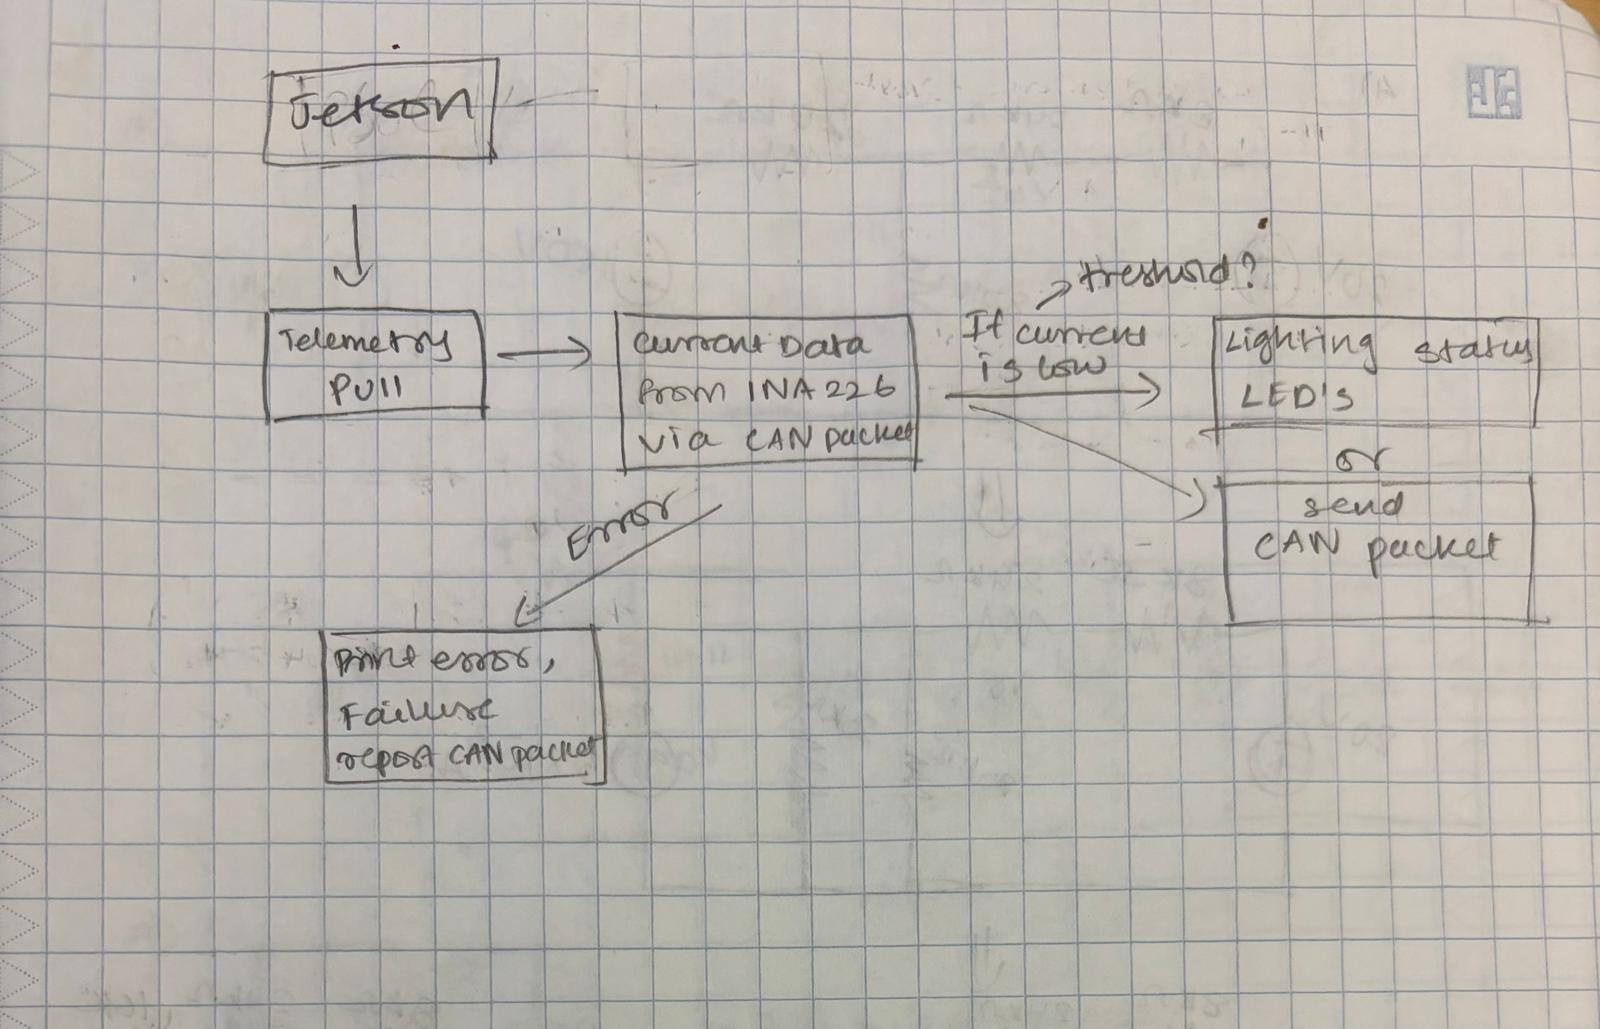 Jetson
Telemetry
PUll
Current Data
from INA226
via CAN packet
If current
is low
treshold?
Lighting status
LED's
or
send
CAN packet
Error
Print error,
Failure
report CAN packet